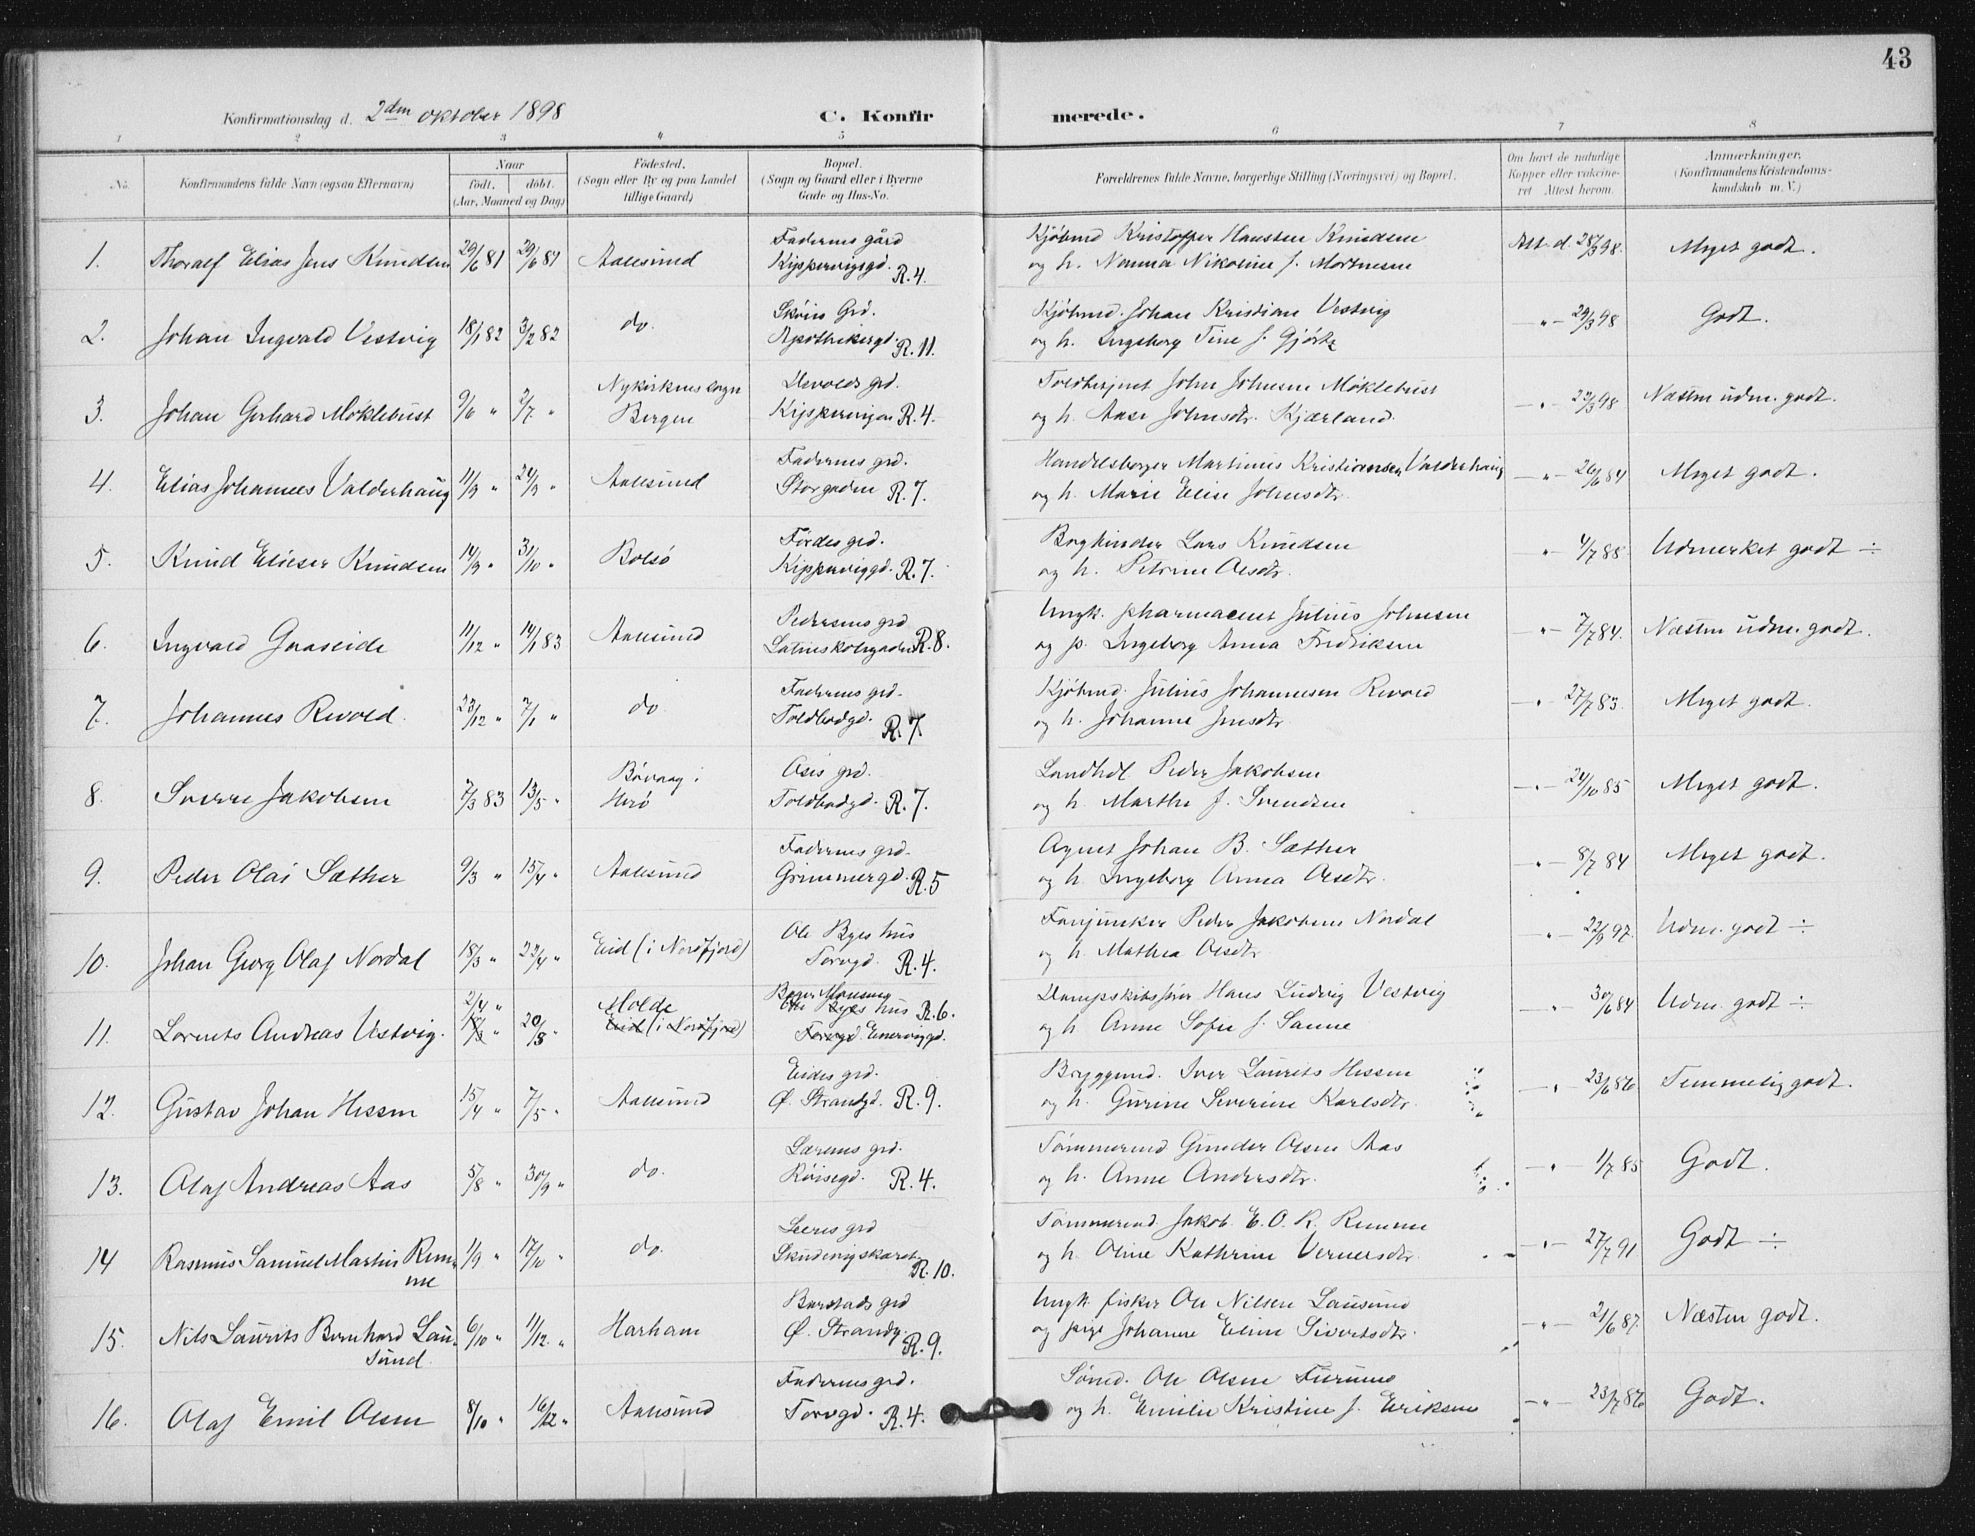 43
Konfirmationsdag d. 2den oktober 1898 C. Konfir merede.
1 2 3 4 5 6 7 8
No. Konfirmandens fulde Navn (ogsaa Efternavn) Naar født. døbt. (Aar, Maaned og Dag) Fødested. (Sogn eller By og paa Landet tillige Gaard) Bopæl. (Sogn og Gaard eller i Byerne Gade og Hus-No. Forældrenes fulde Navne, borgerlige Stilling (Næringsvei) og Bopæl. Om havt de naturlige Kopper eller vakcineret Attest herom. Anmærkninger. (Konfirmandens Kristendomskundskab m. V.)
Faderens gård Kjøbmd Kristoffer Hansten Knudsen
1. Thoralf Elias Jens Knudsen 29/6 81 29/6 81 Aalesund Kippervigsgd. R. 4. og h. Nanna Nikoline f. Mortensen Att. d. 28/3 98. Meget godt.
Skøirs Grd. Kjøbmd. Johan Kristian Vestvig
2. Johan Ingvald Vestvig 18/1 82 3/2 82 do. Apothekergd. R. 11. og h. Ingeborg Tine f. Gjørtz -"- 29/3 98 Godt.
Nykirkens sogn Devolds grd. Toldbetjent John Johnsen Møklebust
3. Johan Gerhard Møklebust 9/6 " 2/7 " Bergen Kippervigen R. 4. og h. Aase Johnsdtr. Kjærland. -"- 22/3 98 Næsten udm. godt.
Faderens grd. Handelsborger Martinus Kristiansen Valderhaug
4. Elias Johannes Valderhaug 11/9 " 24/9 " Aalesund Storgaden R. 7. og h. Marie Elise Johnsdtr. -"- 26/6 84 Meget godt.
Førdes grd. Bogbinder Lars Knudsen
5. Knud Elieser Knudsen 14/9 " 31/10 " Bolsø Kipperviggd. R. 7. og h. Petrine Olsdtr. " 4/7 88 Udmerket godt ÷
Pedersens grd Ungk. pharmaceut Julius Johnsen
6. Ingvald Gaaseide 11/12 " 14/1 83 Aalesund Latinskolegaden R. 8. og p. Ingeborg Anna Fredriksen -"- 7/7 84. Næsten udm. godt.
Faderens grd. Kjøbmd. Julius Johannesen Rivold
7. Johannes Rivold. 23/12 " 7/1 " do. Toldbodgd. R. 7. og h. Johanne Jensdtr. -"- 27/7 83. Meget godt.
Bøvaag i Oses grd. Landhdl Peder Jakobsen
8. Sverre Jakobsen 7/3 83 13/5 " Herø Toldbodgd. R. 7. og h. Marthe f. Svendsen -"- 24/10 85 Meget godt.
Faderens grd. Agent Johan B. Sæther
9. Peder Olai Sæther 9/3 " 15/4 " Aalesund Grimmergd. R. 5 og h. Ingeborg Anna Olsdtr. " 8/7 84 Meget godt.
Ole Byes hus Fanejunker Peder Jakobsen Nordal
10. Johan Georg Olaf Nordal 18/3 " 22/4 " Eid (i Nordfjord) Torvgd. R. 4. og h. Mathea Olsdtr -"- 22/9 97. Udm. godt ÷
2/4 " Molde Dampskibsfører Hans Ludvig Vestvig
11. Lorents Andreas Vestvig. 18/3 " 20/8 " Eid (i Nordfjord) Ole Byes hus R. 6. Torvgd og h. Anne Sofie f. Sanne -"- 30/6 84 Udm. godt ÷
Eides grd. Bryggemd. Iver Laurits Hessen
12. Gustav Johan Hessen 15/4 " 7/5 " Aalesund Ø. Strandgd. R. 9. og h. Gurine Severine Karlsdtr. -"- 23/6 86 Temmelig godt.
Larsens grd. Tømmermd Gunder Olsen Aas
13. Olaf Andreas Aas 5/8 " 30/9 " do. Røisegd. R. 4. og h. Anne Andersdtr. -"- 1/7 85 Godt.
Leeres grd Tømmermd. Jakob E. O. K. Remme
14 Rasmus Samuel Martin Remme 1/9 " 17/10 " do. Skudenyskaret R. 10. og h. Oline Kathrine Vernersdtr. -"- 27/7 91 Godt ÷
Barstads grd Ungk. fisker Ole Nilsen Lausund
15. Nils Laurits Bernhard Lausund. 6/10 " 11/12 " Harham Ø. Strandg. R. 9. og pige Johanne Eline Sivertsdtr. -"- 21/6 87. Næsten godt.
Faderens grd. Sømd. Ole Olsen Furunes
16. Olaf Emil Olsen 8/10 " 16/12 " Aalesund Torvgd. R. 4. og h. Emilie Kristine f. Eriksen -"- 23/7 86 Godt.